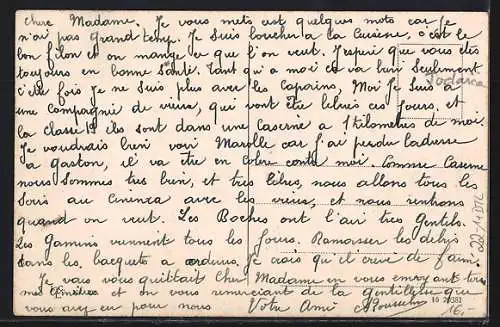 chere Madame. Je vous mets est quelques mots car je
n'ai pas grand temp. Je Suis boucher a la Cuisine, c'est le
bon filon et on mange ce que l'on veut. J'espere que vous etes
toujours en bonne Santé. Tant qui a moi ca va bien Seulement
c'ete fois je ne Suis plus avec les Caporins, Moi je Suis a
une Compagnie de vieux, qui vont etre liberes ces jours. et
la classe 19 ils sont dans une Caserne a 1 kilometres de moi.
Je voudrais bien voir Marolle car j'ai perdu l'adresse
a gaston, il va etre en colere contre moi. Comme Caserne
nous Sommes tres bien, et tres libres, nous allons tous les
Soirs au Cinema avec les vieux, et nous rentrons
quand on veut. Les Boches ont l'air tres Gentils.
Les Gamins viennent tous les jours. Ramasser les debris
dans les baquets a ordures. Je crois qu'il creve de faim.
Je vais vous quiittait Cher Madame en vous envoyant tous
mes et en vous remerciant de la gentillesse que
vous avez eu pour nous Votre Ami
16 20381
16,-